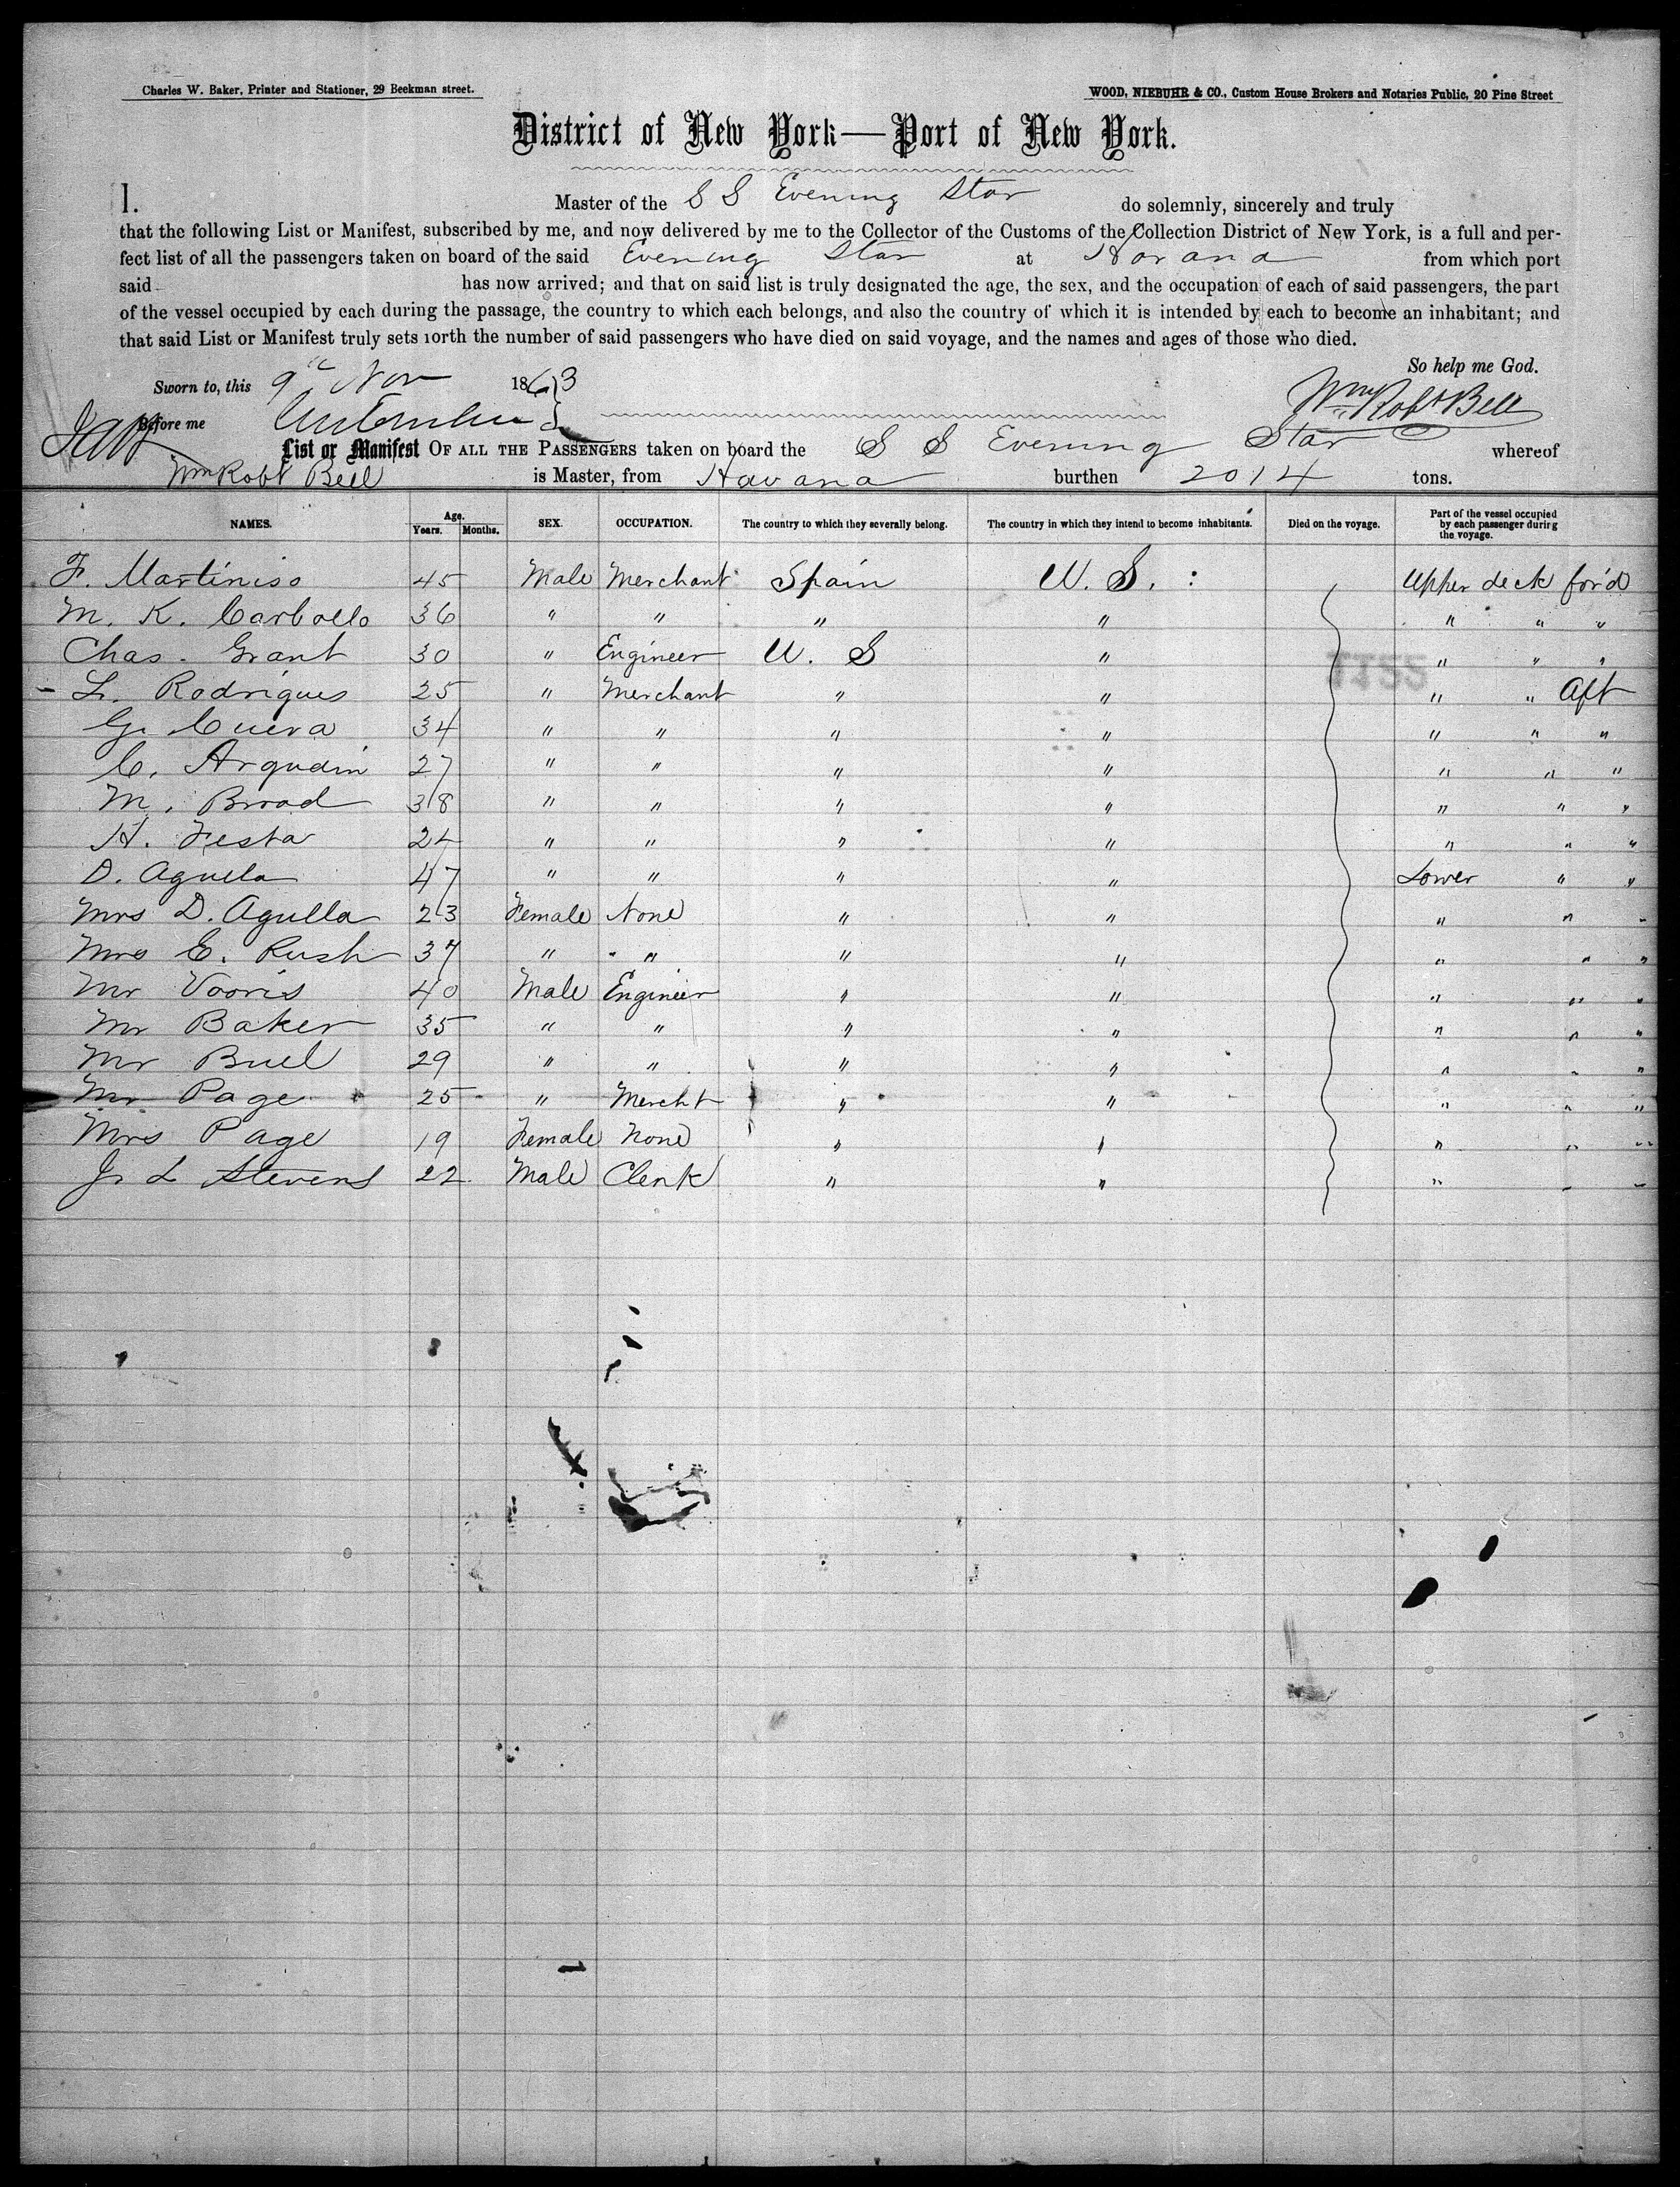 Charles W. Baker, Printer and Stationer, 29 Beekman street.
WOOD, NIEBUHR & CO., Custom House Brokers and Notaries Public, 20 Pine Street
District of New York—Port of New York.
I. Master of the S S Evening Star do solemnly, sincerely and truly
that the following List or Manifest, subscribed by me, and now delivered by me to the Collector of the Customs of the Collection District of New York, is a full and per-
fect list of all the passengers taken on board of the said Evening Star at Havana from which port
said has now arrived; and that on said list is truly designated the age, the sex, and the occupation of each of said passengers, the part
of the vessel occupied by each during the passage, the country to which each belongs, and also the country of which it is intended by each to become an inhabitant; and
that said List or Manifest truly sets forth the number of said passengers who have died on said voyage, and the names and ages of those who died.
So help me God.
Sworn to, this 9th Nov 1863
Wm Robt Bell
Before me
List or Manifest OF ALL THE PASSENGERS taken on board the S S Evening Star whereof
Wm Robt Bell is Master, from Havana burthen 2014 tons.
NAMES. Age. Years. Months. SEX. OCCUPATION. The country to which they severally belong. The country in which they intend to become inhabitants. Died on the voyage. Part of the vessel occupied by each passenger during the voyage.
F. Martiniso 45 Male Merchant Spain U. S. : Upper deck for'd
M. K. Carbollo 36 " " " " " " "
Chas. Grant 30 " Engineer U. S " " " "
1155
- L. Rodrigues 25 " Merchant " " " " Aft
G. Cueva 34 " " " " " " "
C. Arqudin 27 " " " " " " "
M. Broad 38 " " " " " " "
H. Festa 24 " " " " " " "
D. Aguela 47 " " " " Lower " "
Mrs D. Agulla 23 Female None " " " " "
Mrs E. Rush 37 " " " " " " "
Mr Vooris 40 Male Engineer " " " " "
Mr Baker 35 " " " " " " "
Mr Buel 29 " " " " " " "
Mr Page 25 " Mercht " " " " "
Mrs Page 19 Female None " " " " "
Jr L Stevens 22 Male Clerk " " " " "